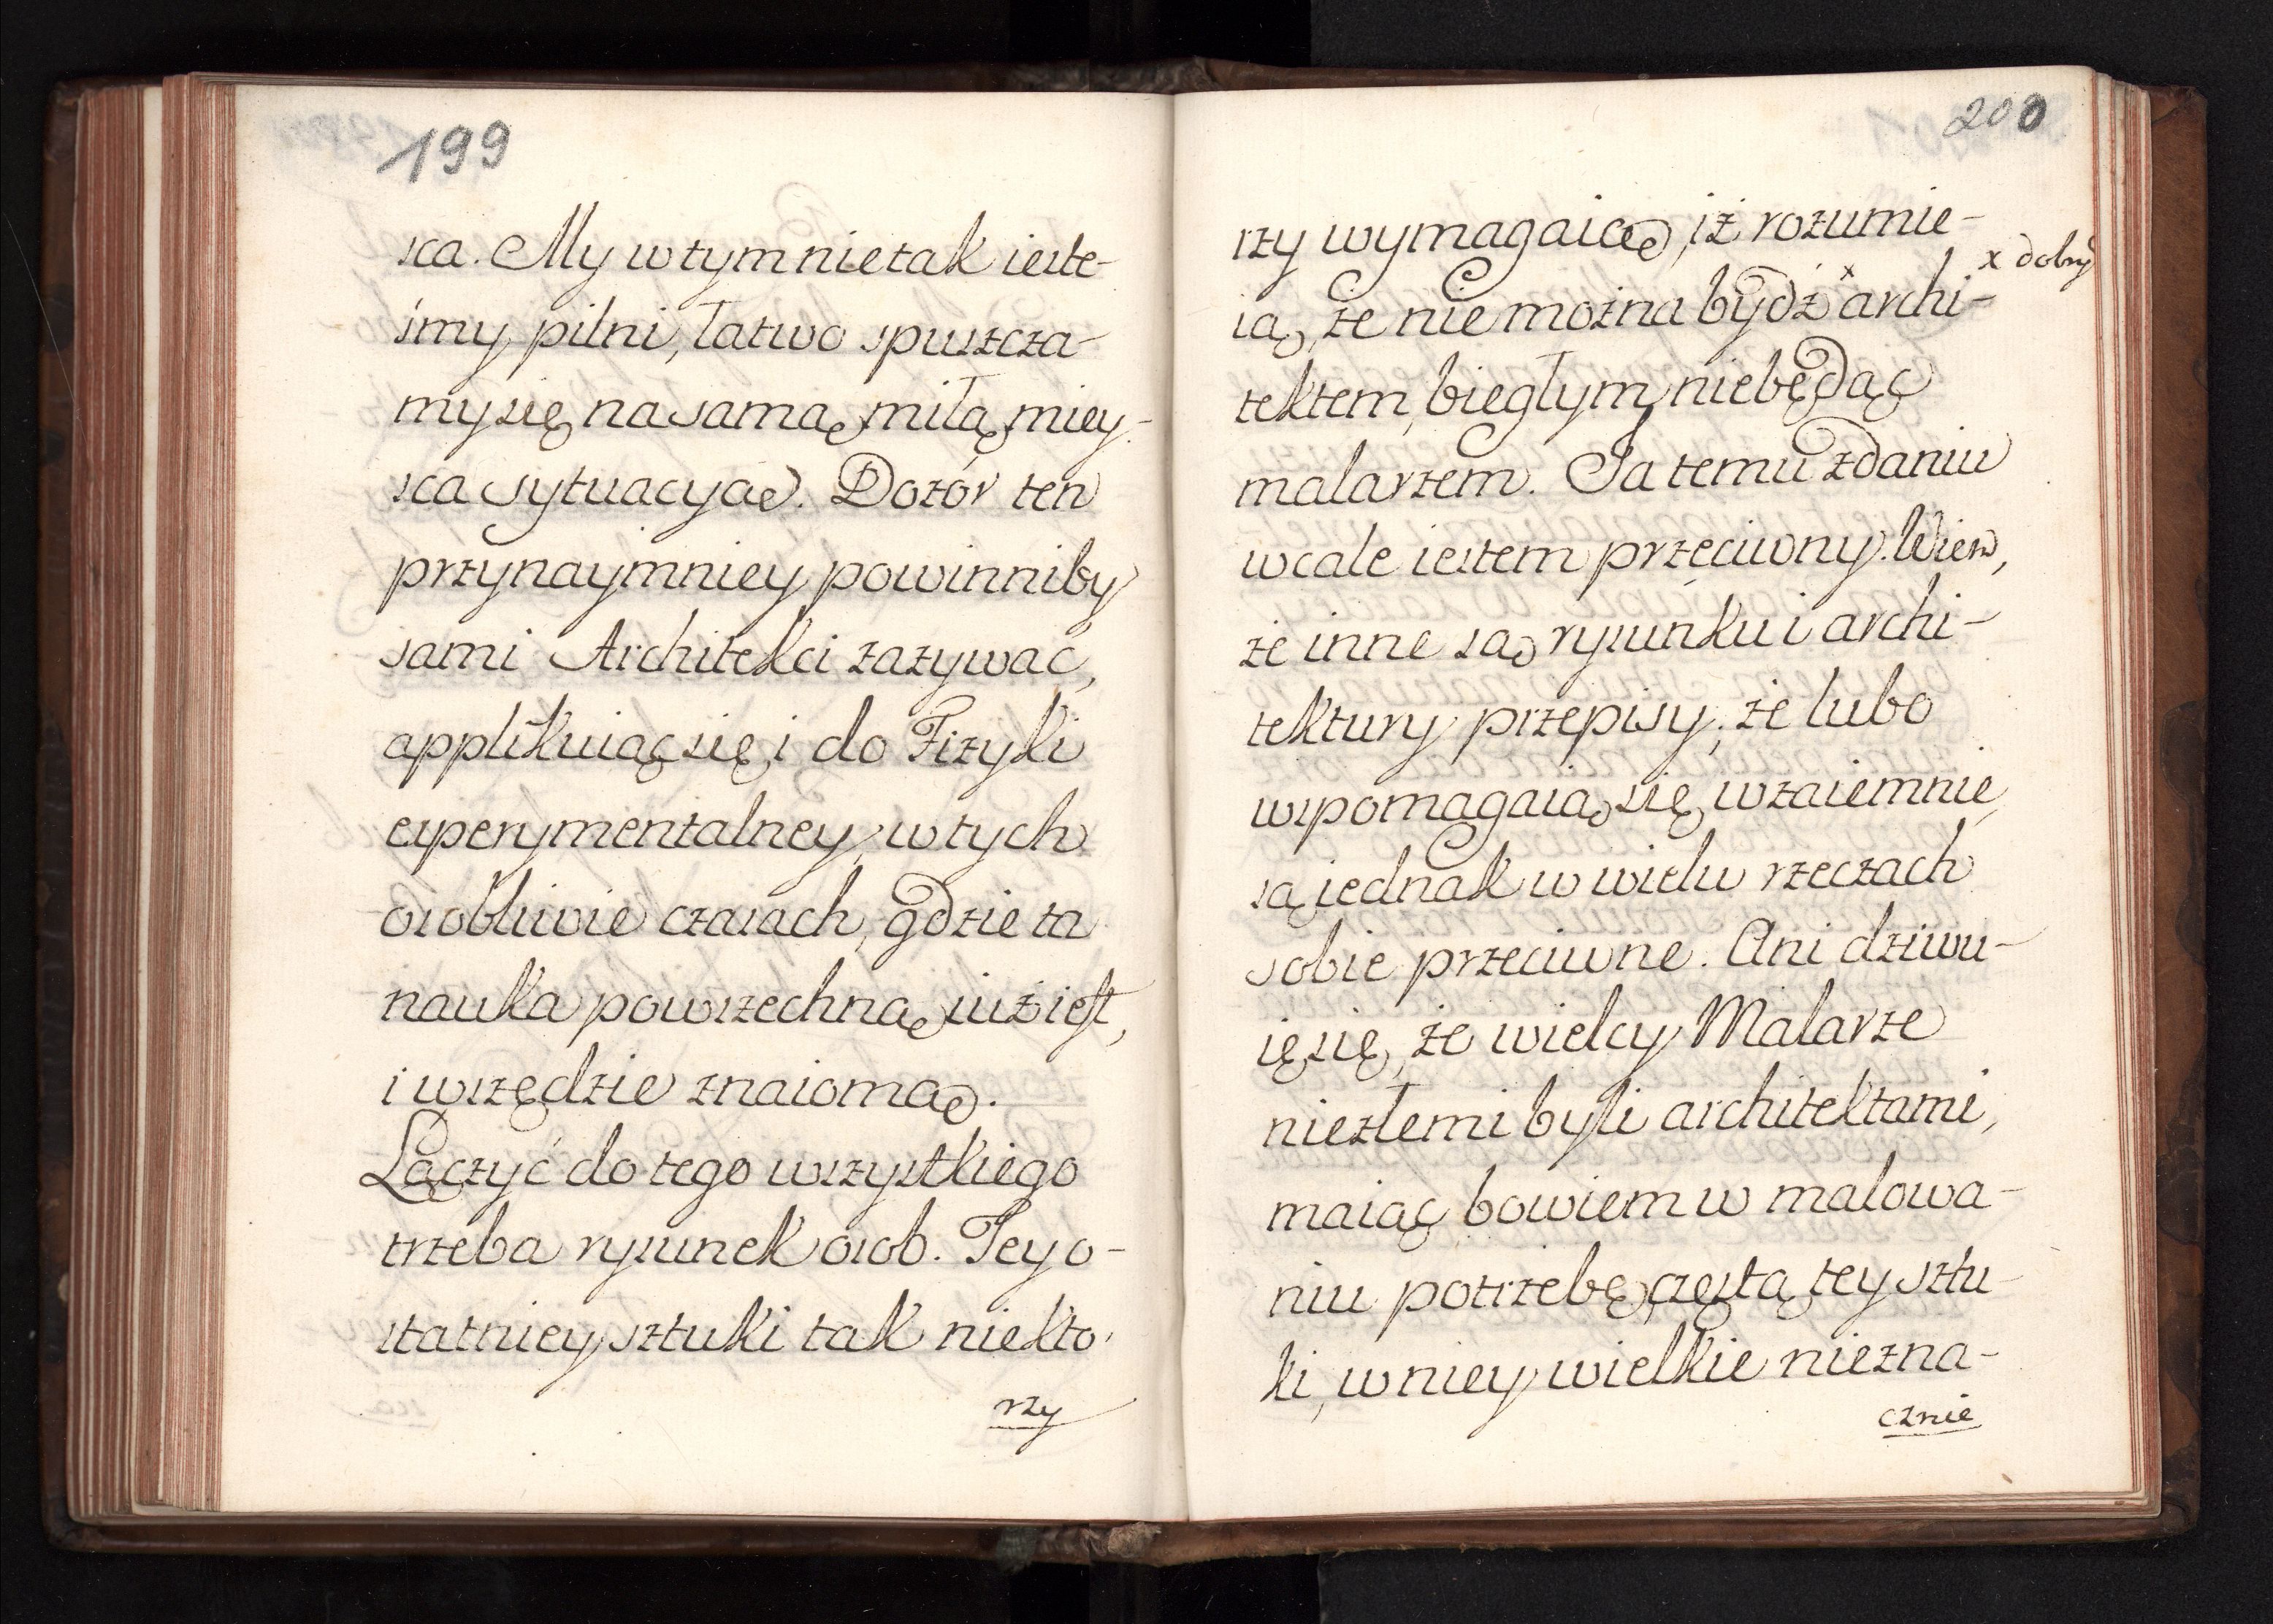 199
sca. My w tym nie tak ieste-
śmy pilni, łatwo spuszcza-
my się na samą miłą miey-
sca sytuacyą. Dozór ten
przynaymniey powinniby
sami Architekci zażywać,
applikuiąc się i do Fizyki
experymentalney, w tych
osobliwie czasach, gdzie ta
nauka powszechną iuż iest,
i wszędzie znaiomą.
Łączyć do tego wszystkiego
trzeba rysunek osob. Tey o-
statniey sztuki tak niektó-
rzy
200
rzy wymagaią, iż rozumie-
x dobrym
ią, że nie można bydź x archi-
tektem, biegłym niebędąc
malarzem. Ja temu zdaniu
wcale iestem przeciwny. Wiem,
że inne są rysunku i archi-
tektury przepisy; że lubo
wspomagaią się wzaiemnie,
są iednak w wielu rzeczach
sobie przeciwne. Ani dziwu-
ię się, że wielcy Malarze
niezłemi byli architektami,
maiąc bowiem w malowa-
niu potrzebę częstą tey sztu-
ki, w niey wielkie niezna-
cznie